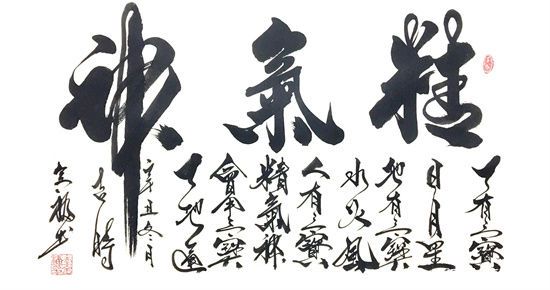 精氣神
天有三寶
日月星
地有三寶
水火風
人有三寶
精氣神
會用三寶
天地通
辛丑冬月
吉時